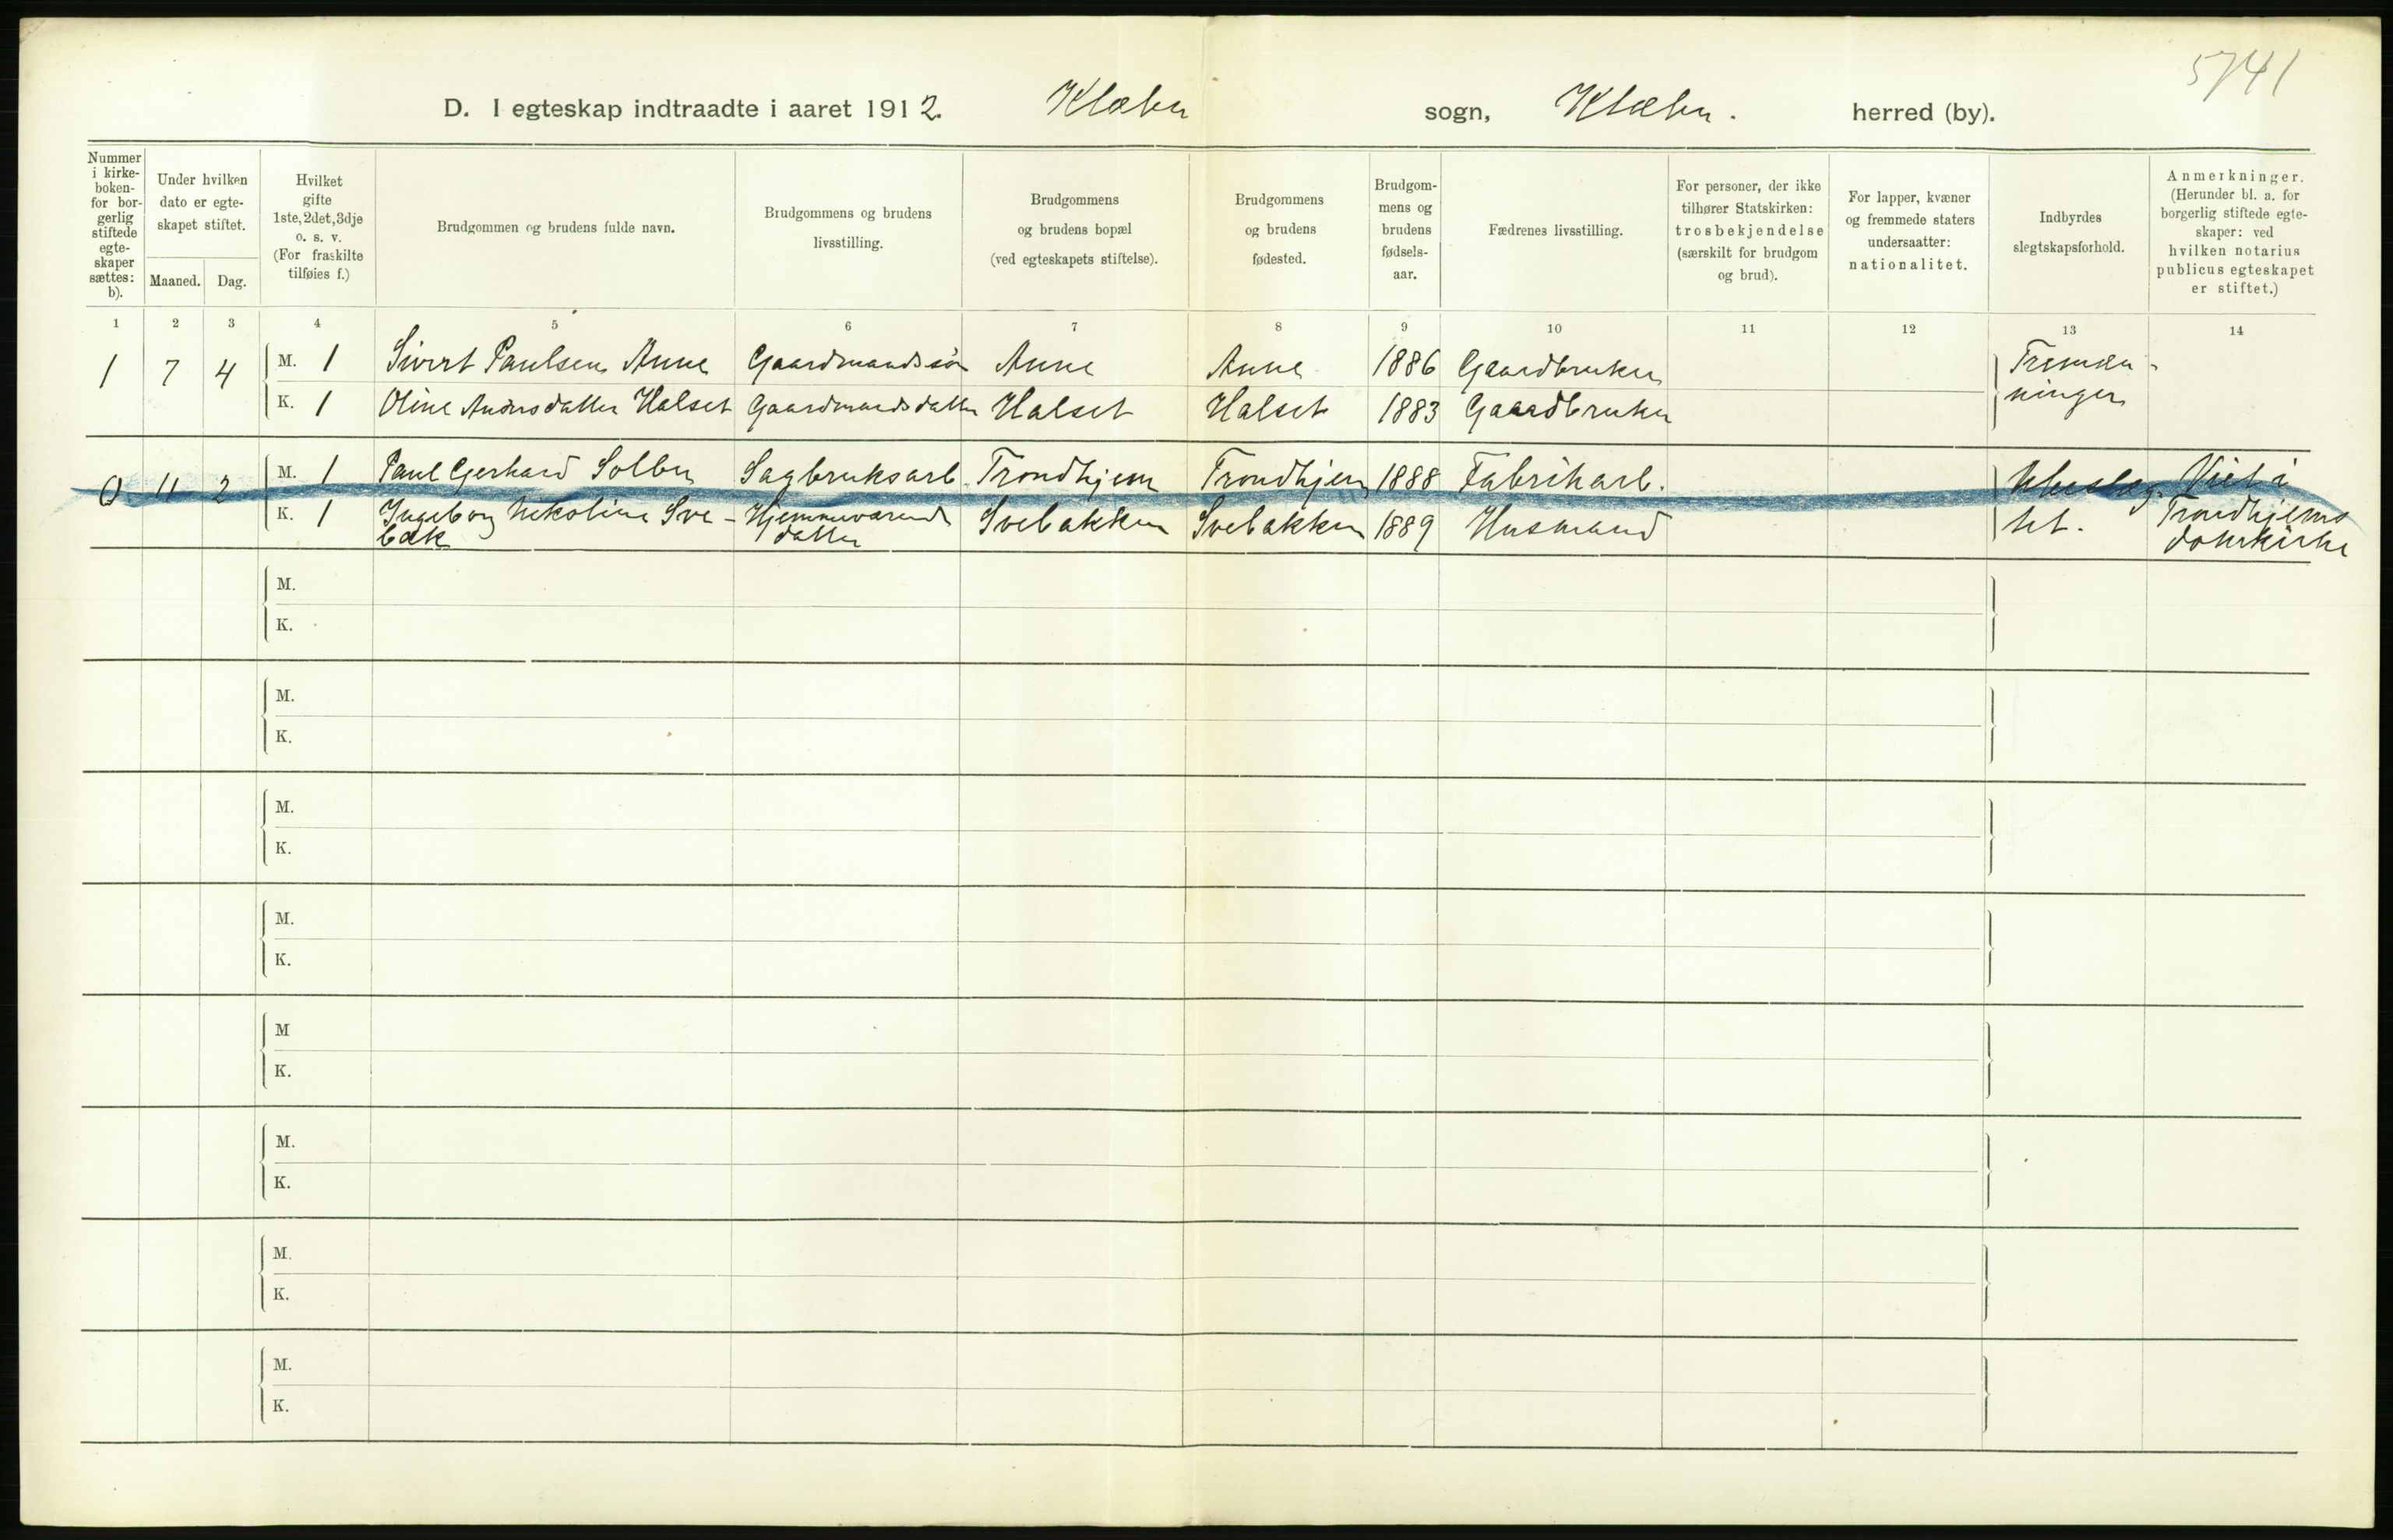 5741
D. I egteskap indtraadte i aaret 1912. Klæbu sogn, Klæbu. herred (by).
Nummer i kirke-boken- for bor-gerlig stiftede egte-skaper sættes: b).
Under hvilken dato er egte-skapet stiftet.
Maaned. Dag.
Hvilket gifte 1ste, 2det, 3dje o. s. v. (For fraskilte tilføies f.)
Brudgommen og brudens fulde navn.
Brudgommens og brudens livsstilling.
Brudgommens og brudens bopæl (ved egteskapets stiftelse).
Brudgommens og brudens fødested.
Brudgom-mens og brudens fødsels-aar.
Fædrenes livsstilling.
For personer, der ikke tilhører Statskirken: trosbekjendelse (særskilt for brudgom og brud).
For lapper, kvæner og fremmede staters undersaatter: nationalitet.
Indbyrdes slegtskapsforhold.
Anmerkninger. (Herunder bl. a. for borgerlig stiftede egte-skaper: ved hvilken notarius publicus egteskapet er stiftet.)
1 2 3 4 5 6 7 8 9 10 11 12 13 14
1 7 4 M. 1 Sivert Paulsen Anne Gaardmandssøn Anne Anne 1886 Gaardbruker Tremæn-
K. 1 Oline Andersdatter Halset Gaardmandsdatter Halset Halset 1883 Gaardbruker ninger
0 11 2 M. 1 Paul Gerhard Solbu Sagbruksarb. Trondhjem Trondhjem 1888 Fabrikarb. Ubeslæg- Viet i
K. 1 Ingeborg Nikoline Sve- Hjemmeværende Svebakken Svebakken 1889 Husmand tet. Trondhjems
bak datter domkirke
M.
K.
M.
K.
M.
K.
M.
K.
M
K.
M.
K.
M.
K.
M.
K.